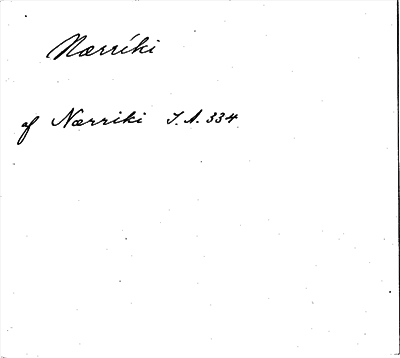 Nærríki
af Nærriki I. A. 334